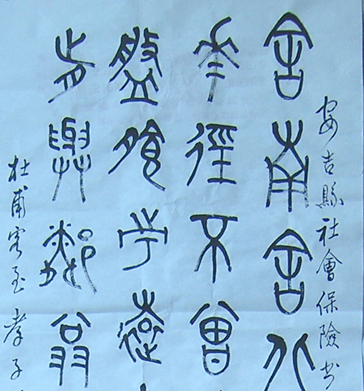 安吉縣社會保險
舍南舍北
花徑不曾
盤飧市遠
肯與鄰翁
杜甫客至孝子